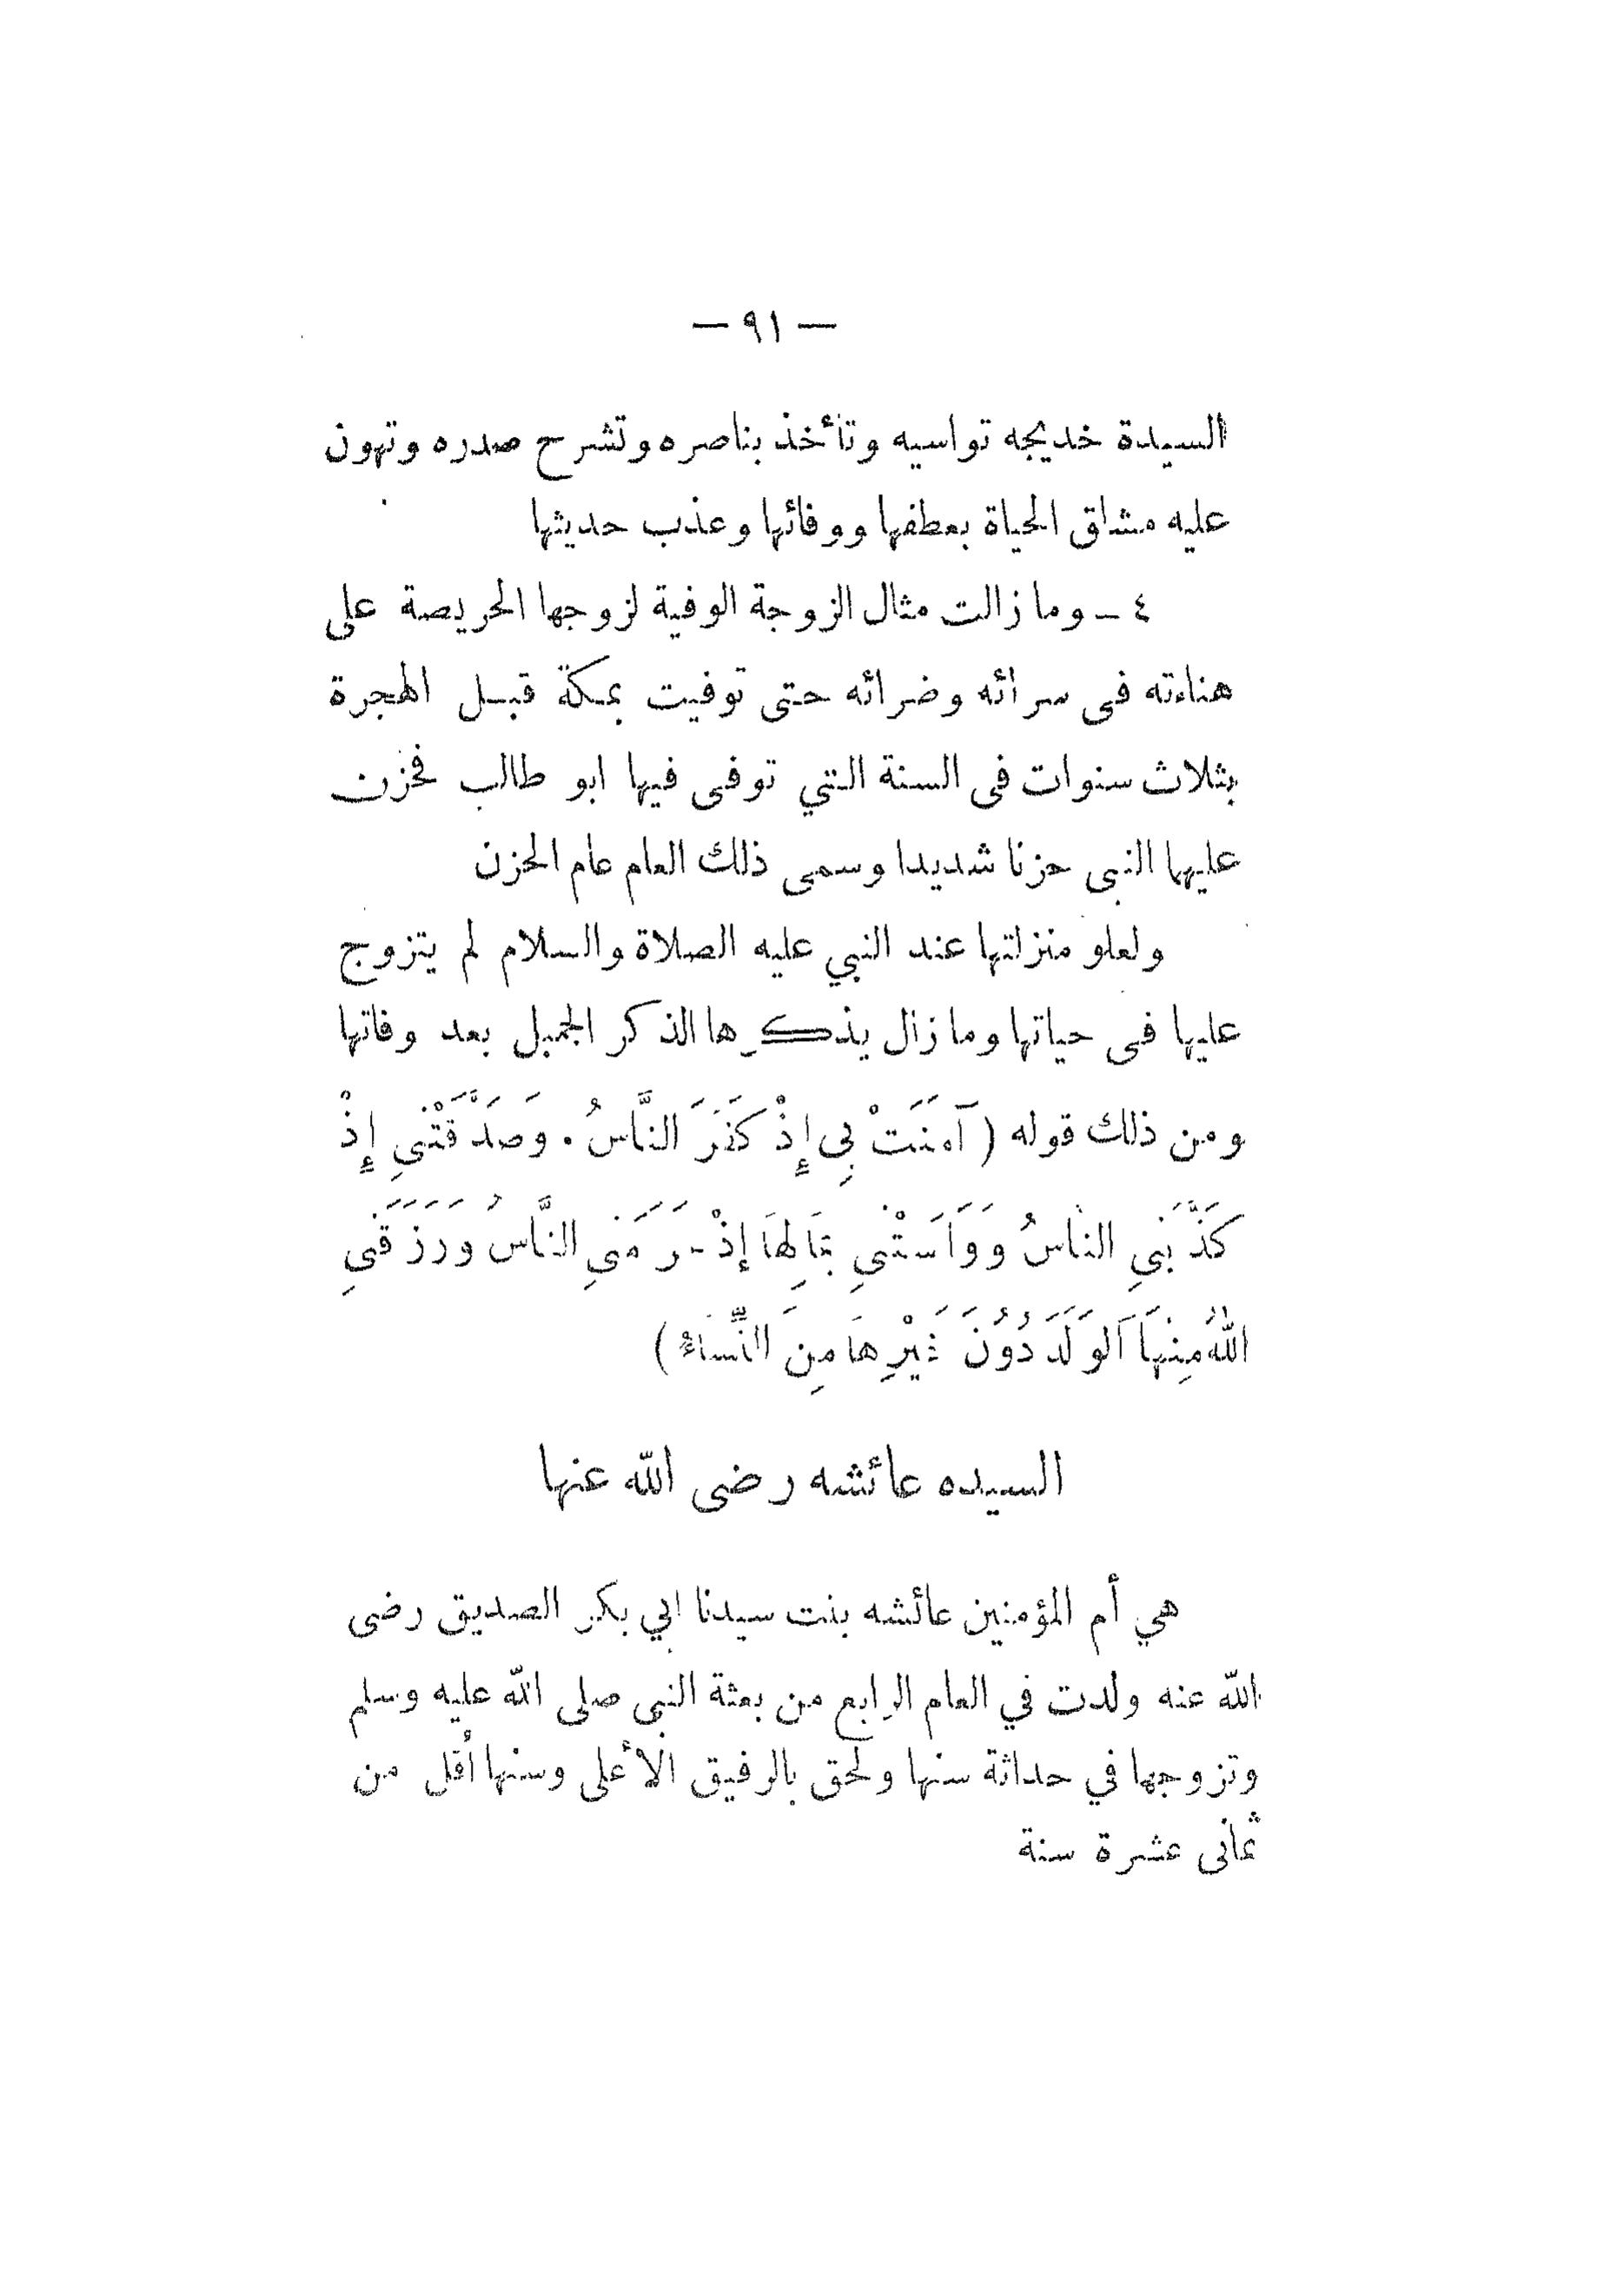 — ٩١ —
السيدة خديجه تواسيه وتأخذ بناصره وتشرح صدره وتهون
عليه مشاق الحياة بعطفها ووفائها وعذب حديثها
٤ ـ وما زالت مثال الزوجة الوفية لزوجها الحريصة على
هناءته فى سرائه وضرائه حتى توفيت بمكة قبل الهجرة
بثلاث سنوات فى السنة التي توفى فيها ابو طالب فحزن
عليهما النبى حزنا شديدا وسمى ذلك العام عام الحزن
ولعلو منزلتها عند النبي عليه الصلاة والسلام لم يتزوج
عليها فى حياتها وما زال يذكرها الذكر الجميل بعد وفاتها
ومن ذلك قوله ( آمَنَتْ بِى إِذْ كَفَرَ النَّاسُ . وَصَدَّقَتْنِى إِذْ
كَذَّبَنِي النَّاسُ وَوَاسَتْنِي بِمَالِهَا إِذْ حَرَمَنِي النَّاسُ وَرَزَقَنِي
اللهُ مِنْهَا الوَلَدَ دُونَ غَيْرِهَا مِنَ النِّسَاءِ )
السيده عائشه رضى الله عنها
هي أم المؤمنين عائشه بنت سيدنا ابي بكر الصديق رضى
الله عنه ولدت في العام الرابع من بعثة النبى صلى الله عليه وسلم
وتزوجها في حداثة سنها ولحق بالرفيق الأعلى وسنها أقل من
ثمانى عشرة سنة